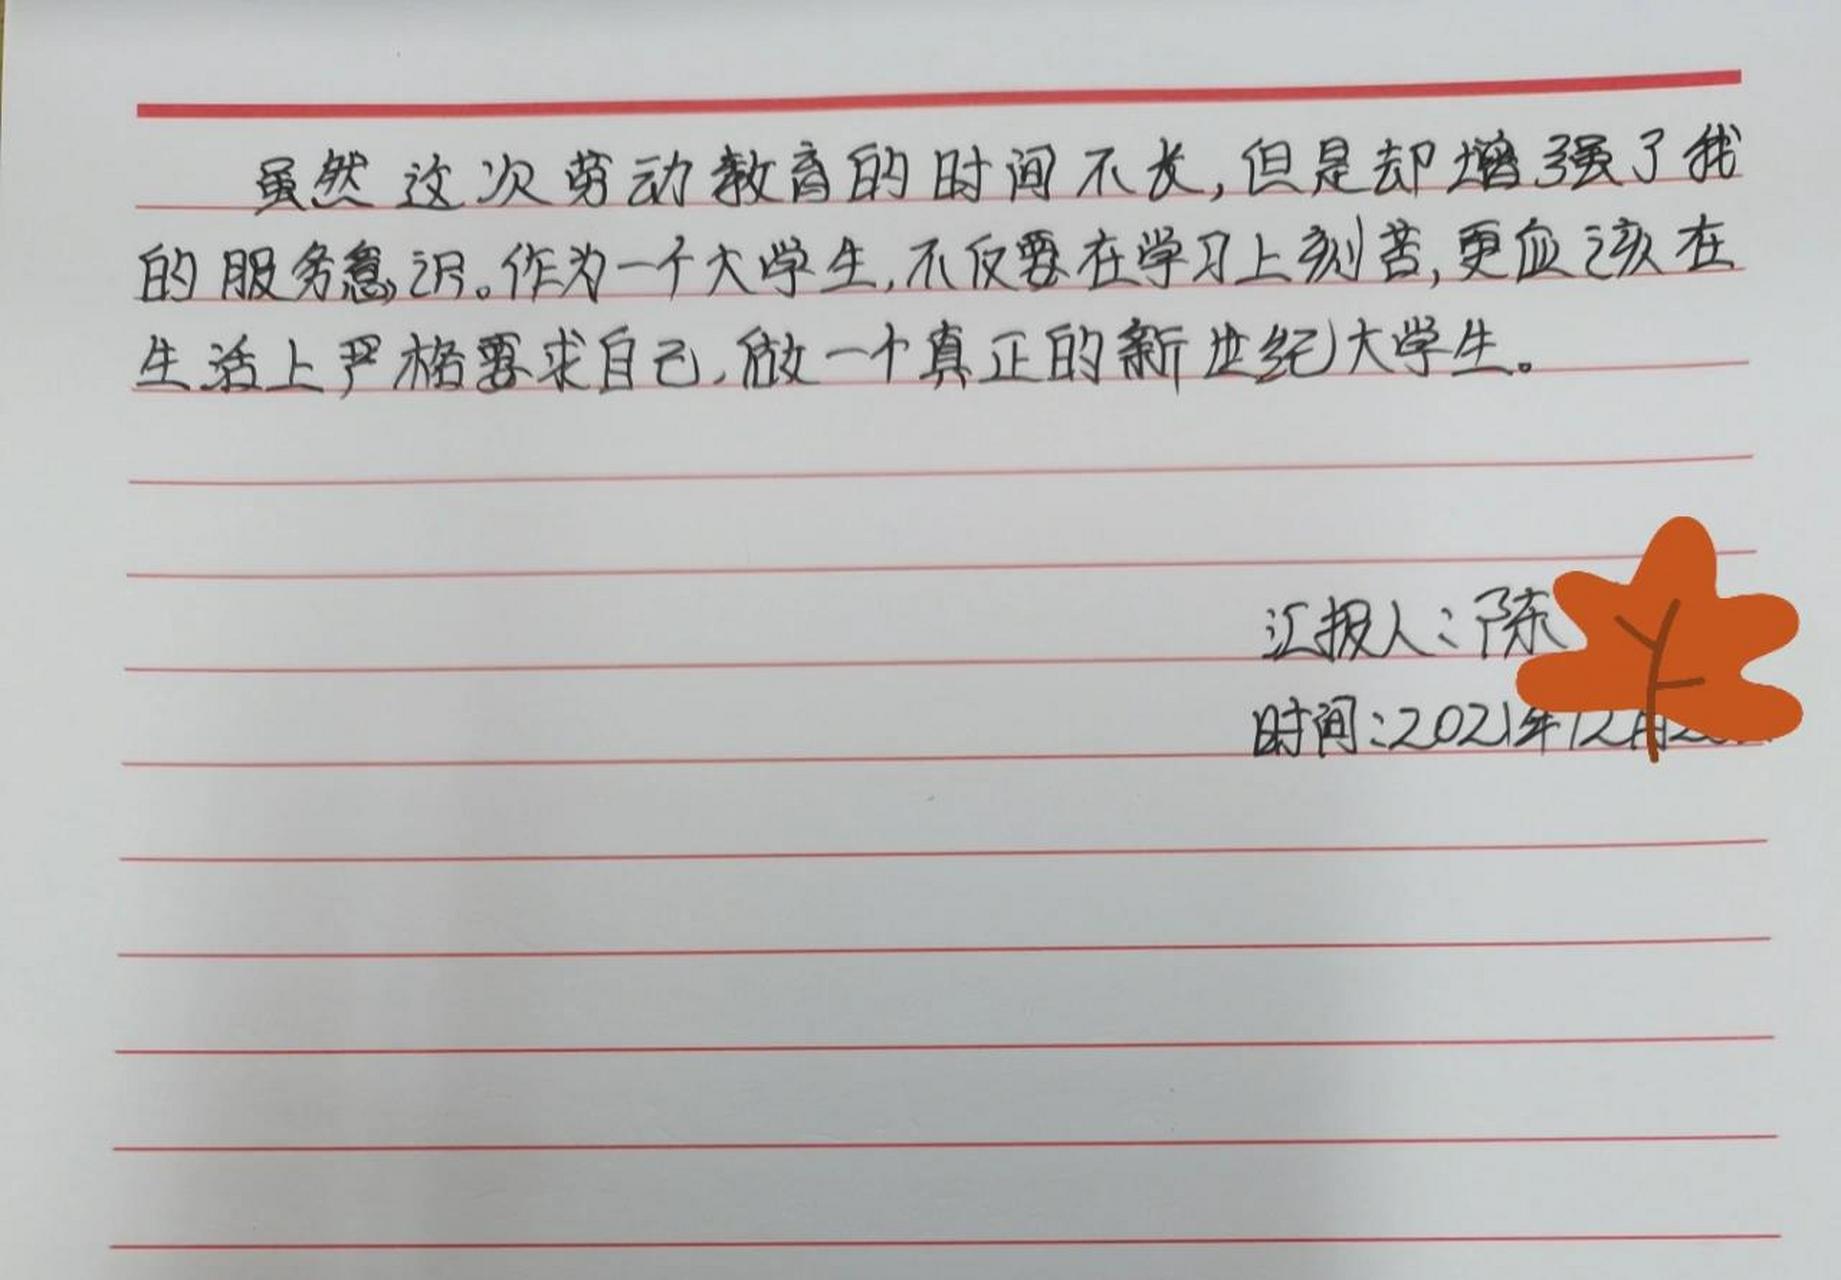 虽然这次劳动教育的时间不长,但是却增强了我
的服务意识。作为一个大学生,不仅要在学习上刻苦,更应该在
生活上严格要求自己,做一个真正的新世纪大学生。
汇报人:陈
时间:2021年12月